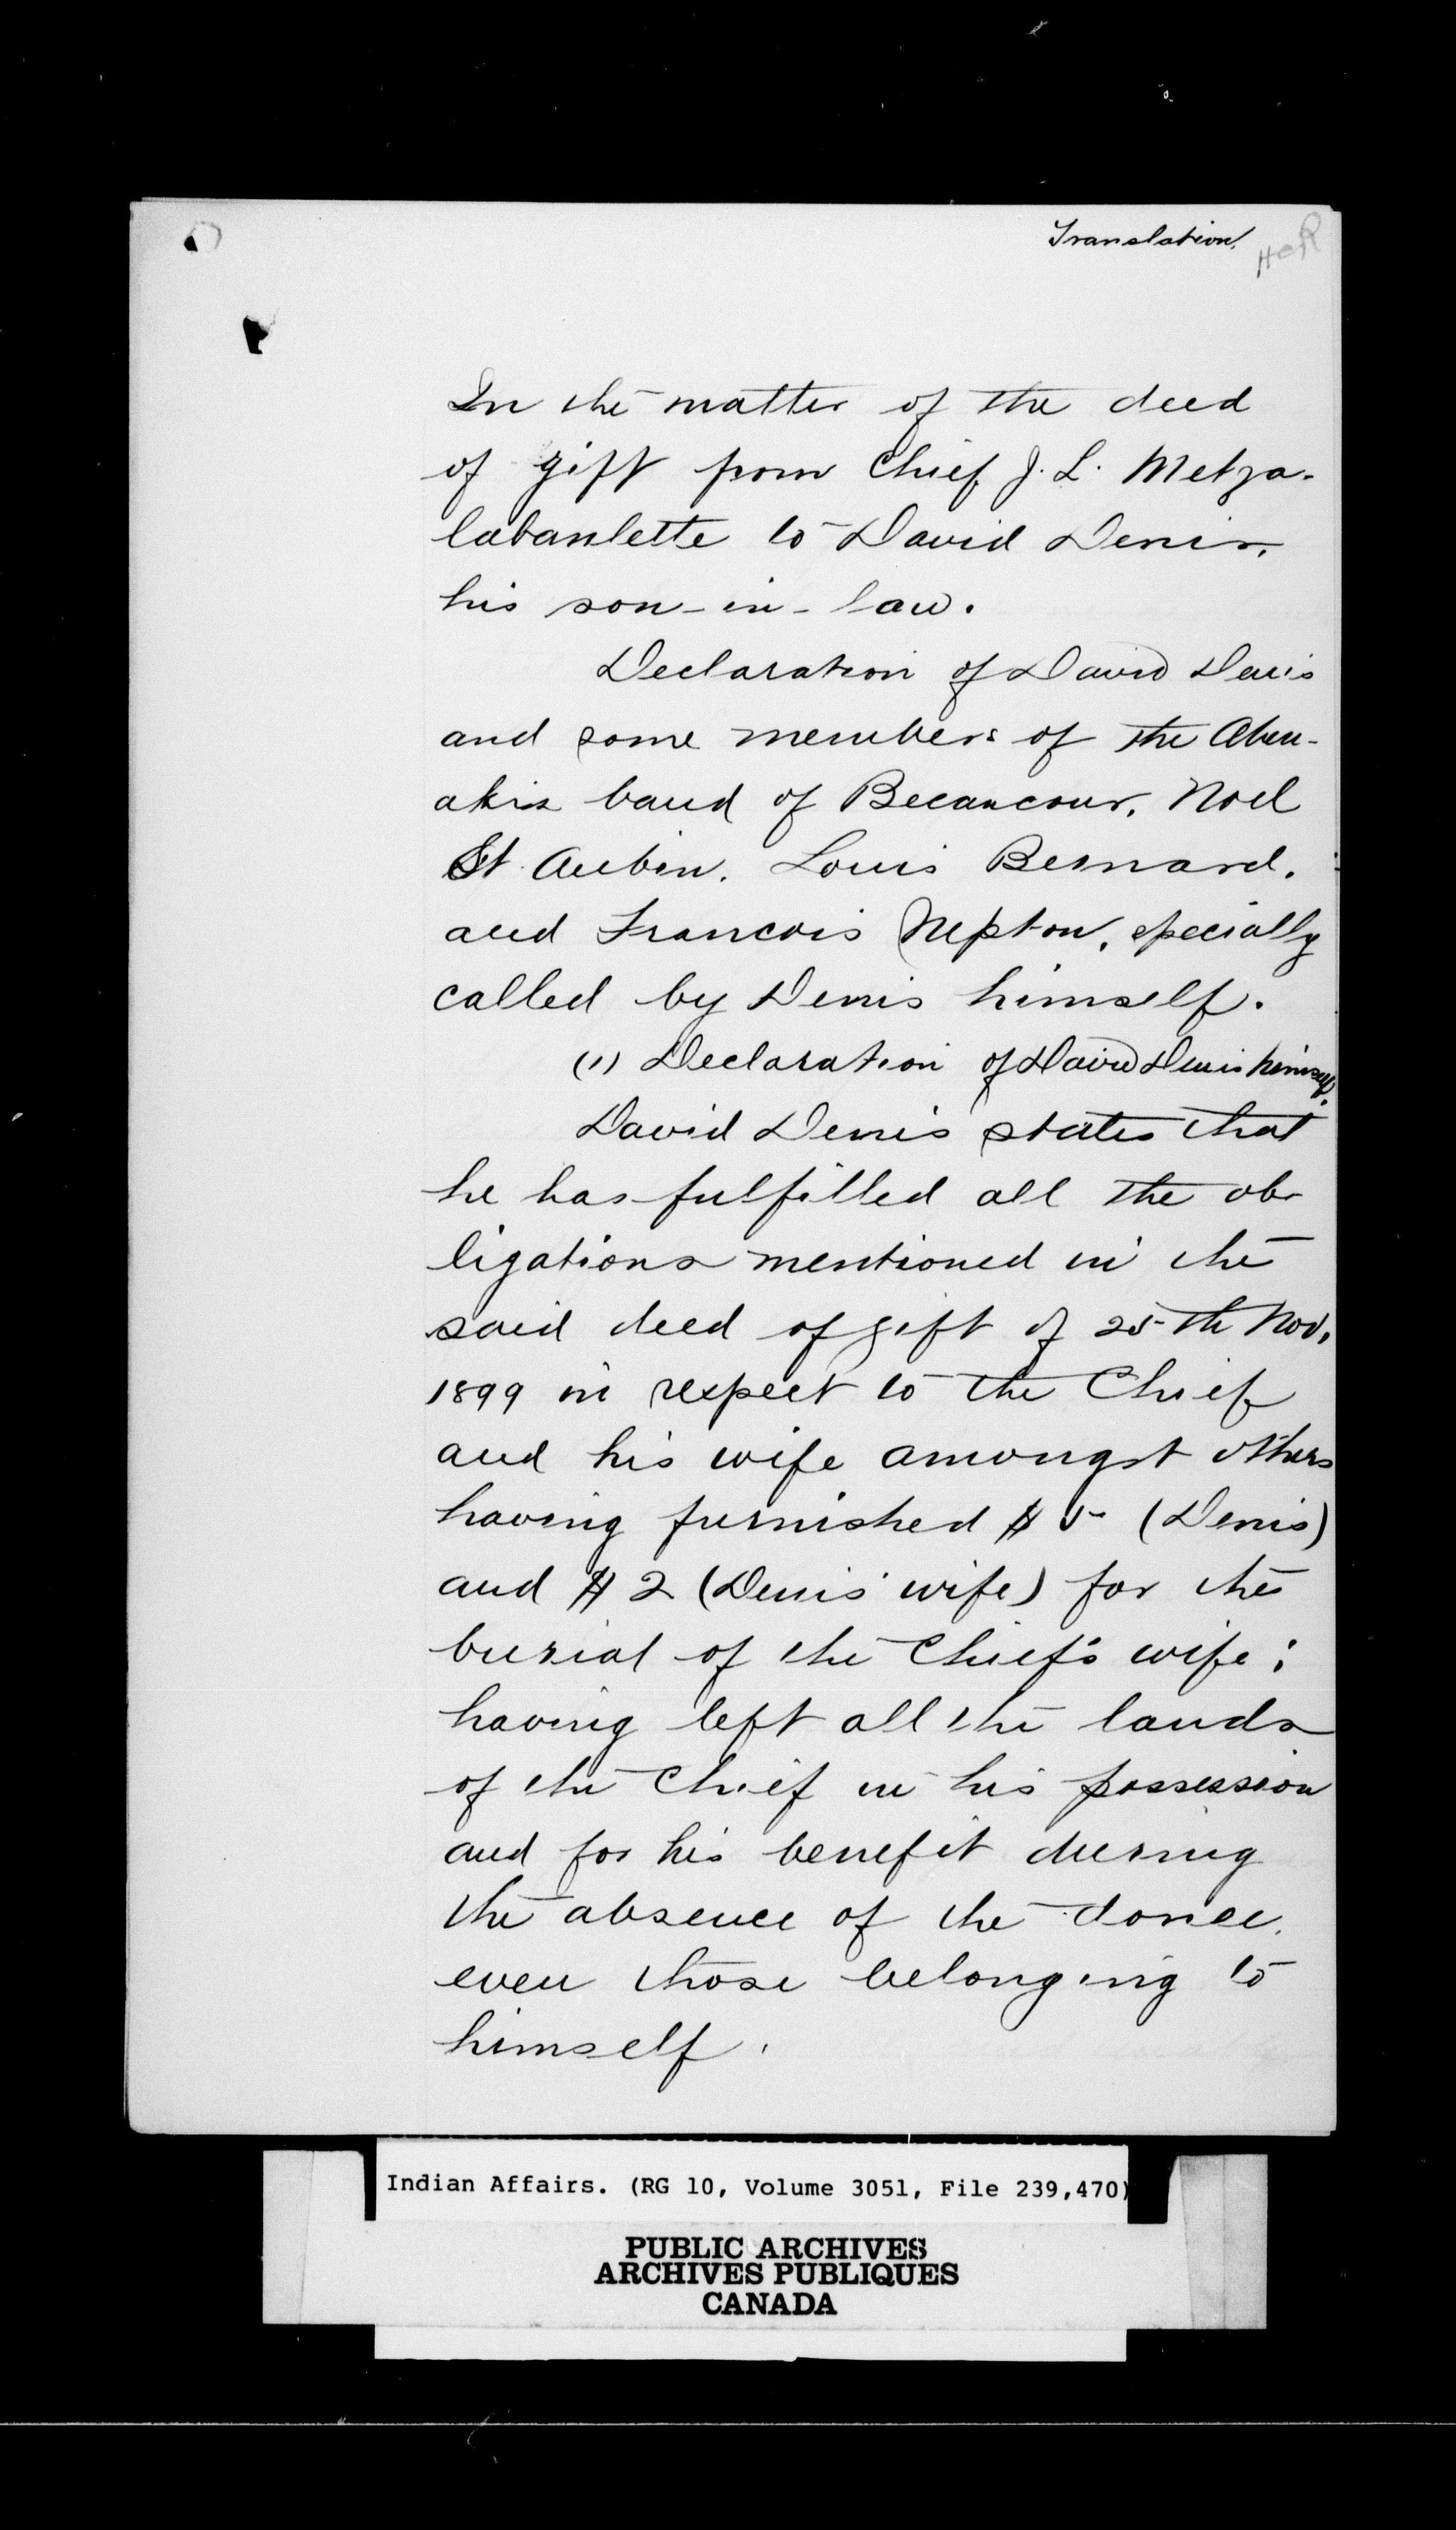 Translation.
HCR
In the matter of the deed
of gift from Chief J. L. Metza-
labanlette to David Denis,
his son-in-law.
Declaration of David Denis
and some members of the Aben-
akis band of Becancour, Noel
St. Aubin, Louis Bernard,
and Francois Nepton, specially
called by Denis himself.
(1) Declaration of David Denis himself.
David Denis states that
he has fulfilled all the ob-
ligations mentioned in the
said deed of gift of 25th Nov.
1899 in respect to the Chief
and his wife amongst others
having furnished $5 (Denis)
and $2 (Denis' wife) for the
burial of the Chief's wife;
having left all the lands
of the Chief in his possession
and for his benefit during
the absence of the donee,
even those belonging to
himself.
Indian Affairs. (RG 10, Volume 3051, File 239,470)
PUBLIC ARCHIVES
ARCHIVES PUBLIQUES
CANADA